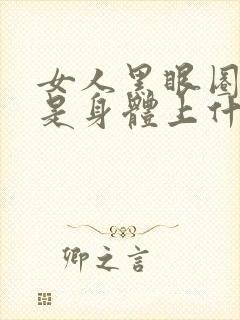 女人黑眼圈
是身體上什
卿之言